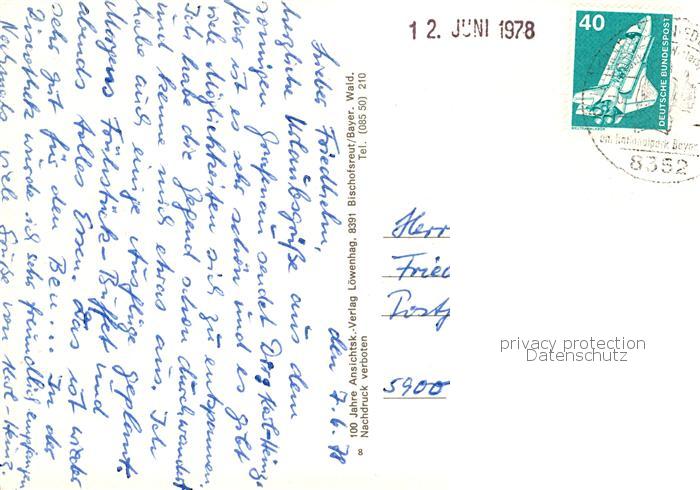 den 7.6.78
Lieber Friedhelm,
herzliche Urlaubsgrüße aus dem
sonnigen Grafenau sendet Dir Karl-Heinz
Hier ist es sehr schön und es gibt
viele Möglichkeiten sich zu entspannen.
Ich habe die Gegend schon durchwandert
und kenne mich etwas aus. Ich
habe auch einige Ausflüge geplant.
Morgens Frühstück-Buffet und
abends tolles Essen. Das ist wieder
sehr gut für den Bau.... In der
Discothek wurde ich sehr freundlich empfangen
Nochmals viele Grüße von Karl-Heinz.
100 Jahre Ansichtsk.-Verlag Löwenhag, 8391 Bischofsreut/Bayer. Wald.
Nachdruck verboten Tel. (085 50) 210
8
12. JUNI 1978
40
DEUTSCHE BUNDESPOST
WELTRAUMLABOR
am Nationalpark Bayer
8352
Herr
Fried
Postf
5900
privacy protection
Datenschutz